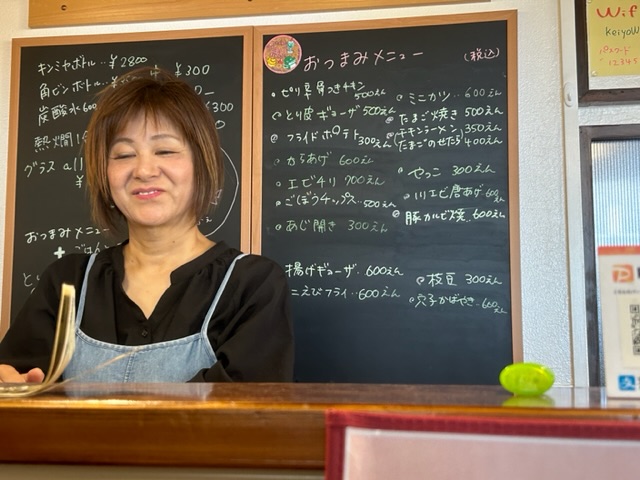 キンミヤボトル‥¥2800
角ビンボトル
¥300
炭酸水600
¥300
熱燗1合
グラス all
おつまみメニュー
+ ごはん
おつまみメニュー (税込)
ピリ辛骨つきチキン 500えん
とり皮ギョーザ 500えん
フライドポテト 300えん
からあげ 600えん
エビチリ 700えん
ごぼうチップス‥500えん
あじ開き 300えん
揚げギョーザ 600えん
こえびフライ‥600えん
ミニカツ‥600えん
たまご焼き 500えん
チキンラーメン 350えん
たまごのせたら 400えん
やっこ 300えん
川エビ唐あげ 600えん
豚カルビ焼 600えん
枝豆 300えん
穴子かばやき 600えん
Wif
KeiyoW
パスワード
12345